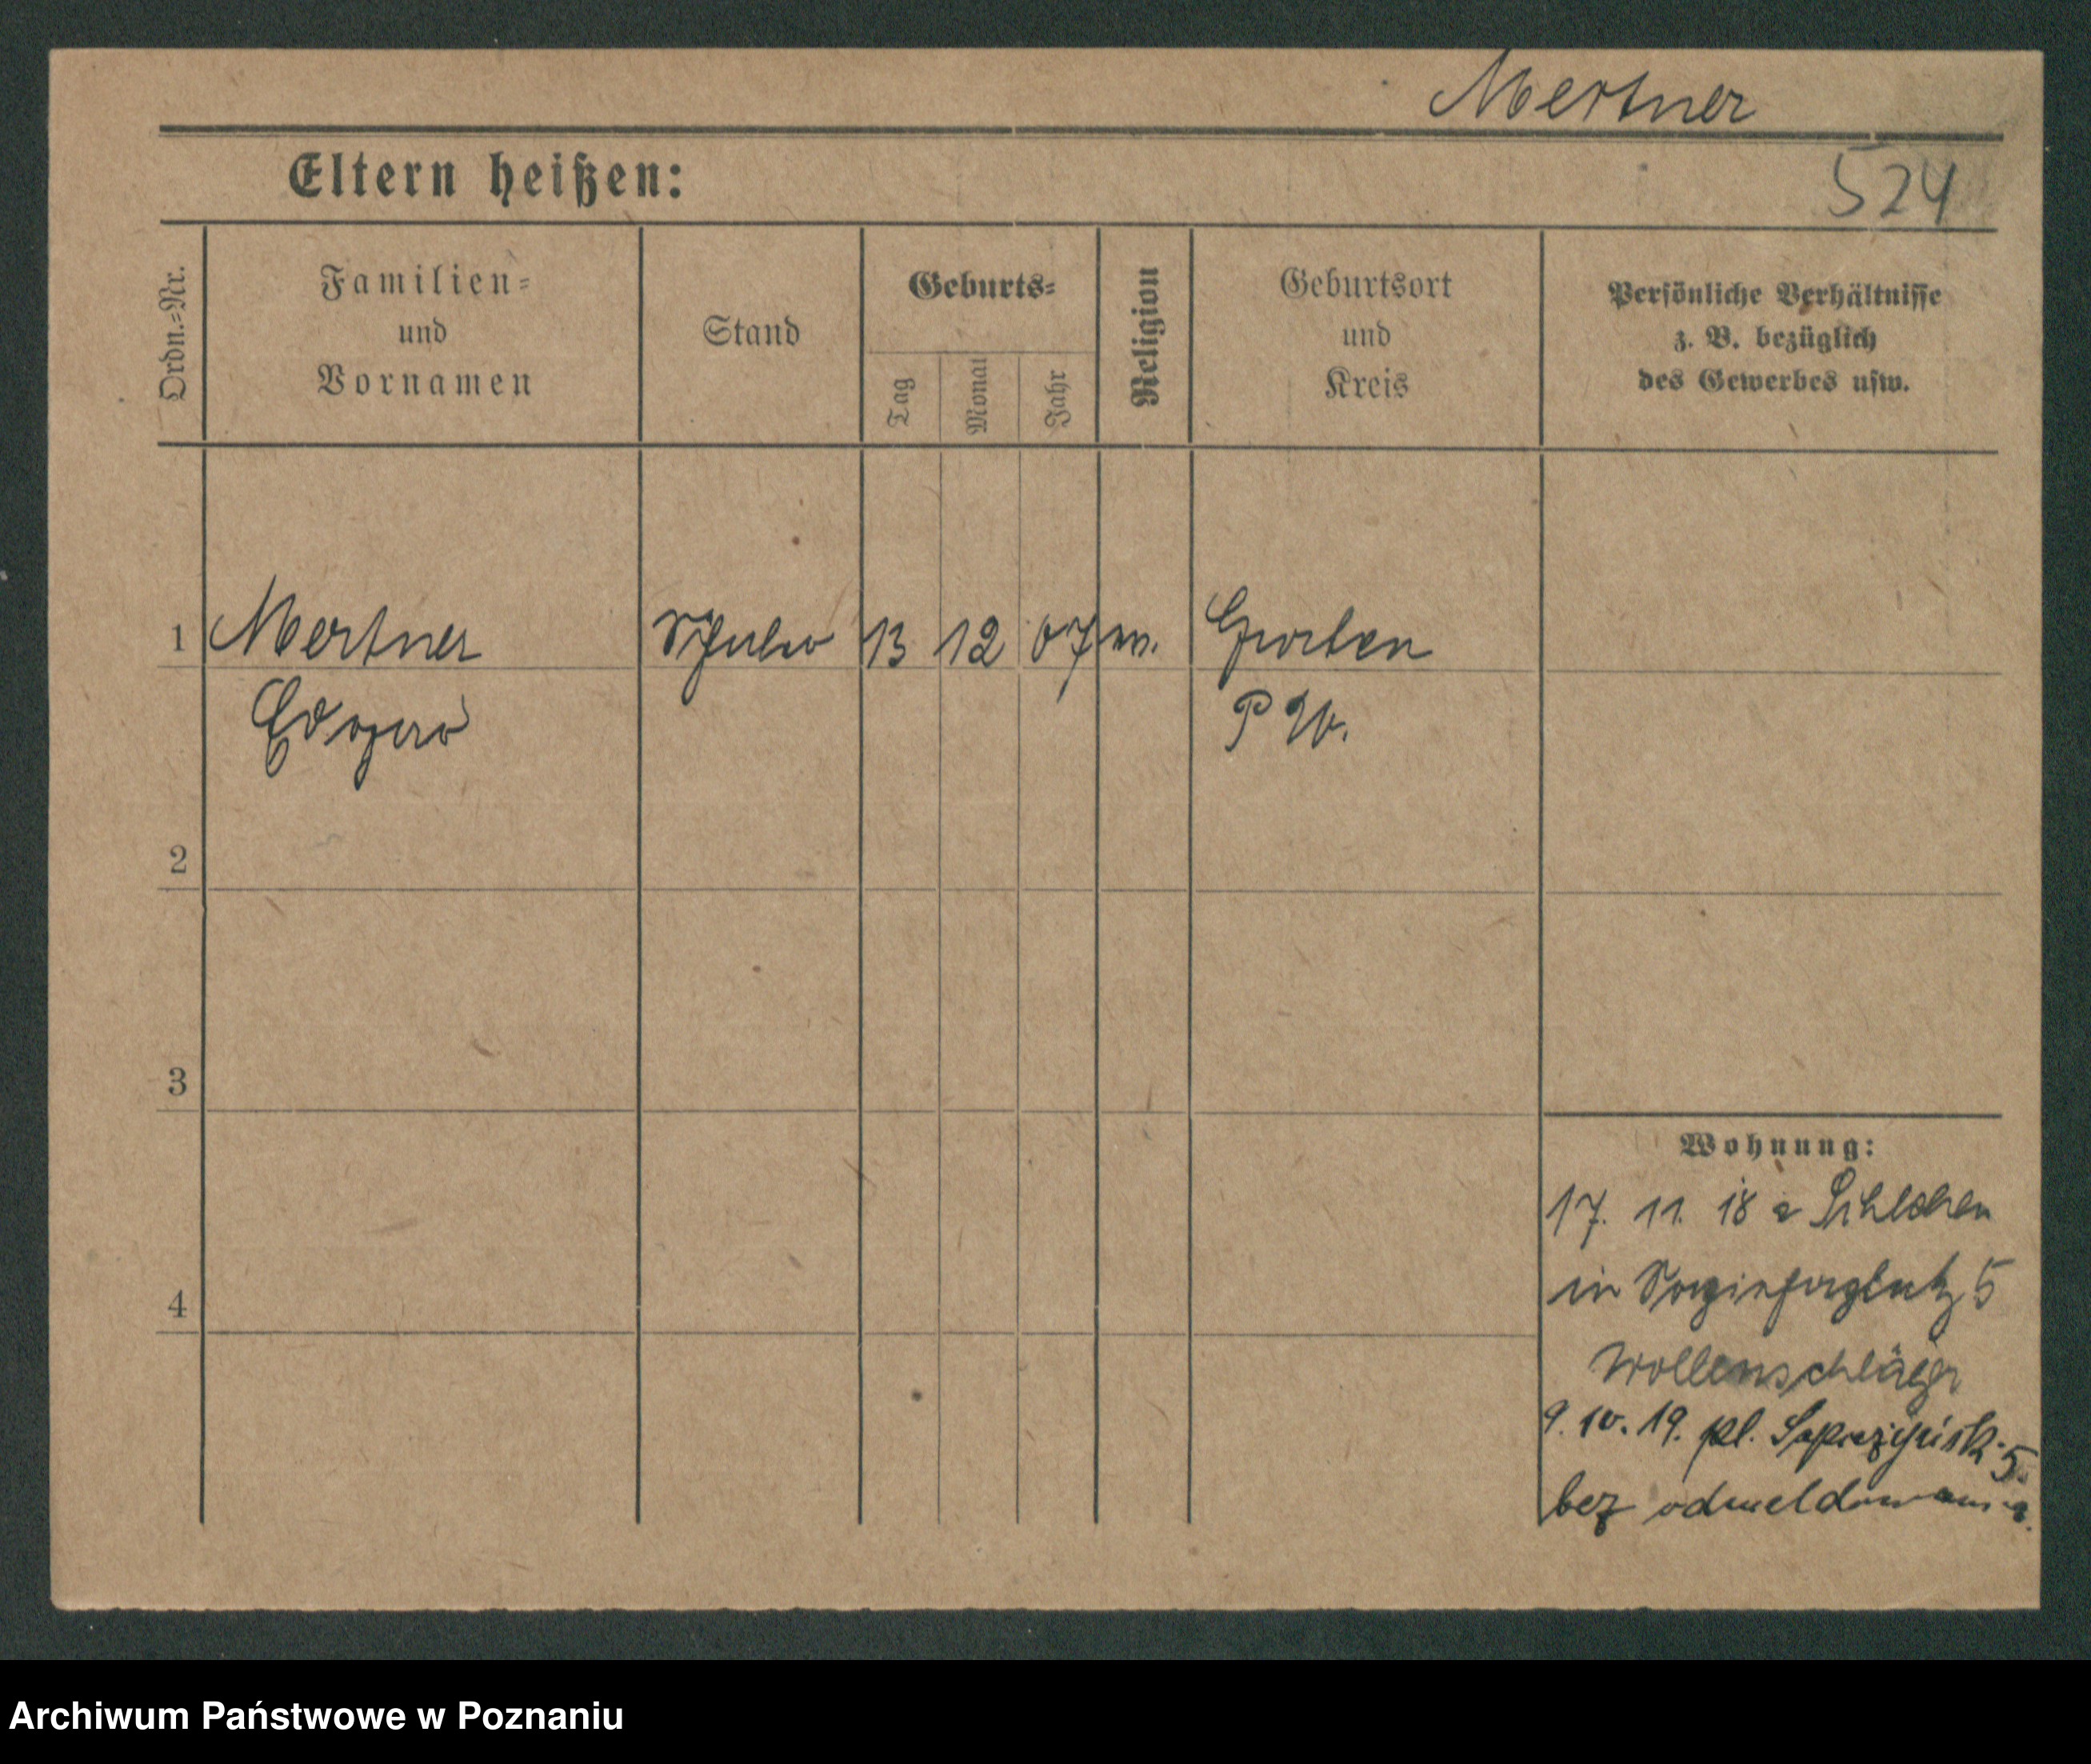 Mertner
Eltern heißen:
524
Ordn.=Nr.
Familien=
und
Vornamen
Stand
Geburts=
Tag
Monat
Jahr
Religion
Geburtsort
und
Kreis
Persönliche Verhältnisse
z. B. bezüglich
des Gewerbes usw.
1 Mertner Schüler 13 12 07
Edgard
2
3
4
Wohnung:
17. 11. 18
in 5
Wollenschläger
9. 10. 19. pl. Sapieżyńsk. 5.
bez odmeldowania.
Archiwum Państwowe w Poznaniu